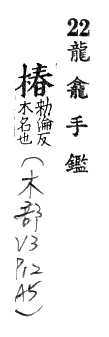 22龍龕手鑑
椿勑倫反木名也(木部V3P12A5)